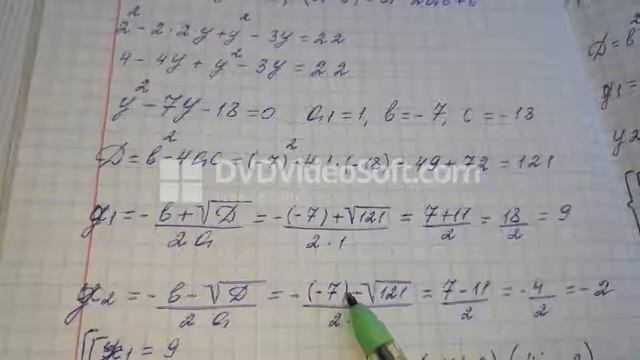 2² - 2·2·y + y² - 3y = 22
4 - 4y + y² - 3y = 22
y² - 7y - 18 = 0   a = 1, b = -7, c = -18
D = b² - 4ac = (-7)² - 4·1·(-18) = 49 + 72 = 121
DVDVideoSoft.com
y₁ = -b + √D / 2a = -(-7) + √121 / 2·1 = 7+11 / 2 = 18 / 2 = 9
y₂ = -b - √D / 2a = -(-7) - √121 / 2· = 7-11 / 2 = -4 / 2 = -2
y₁ = 9
D = b²
y₁ =
y₂